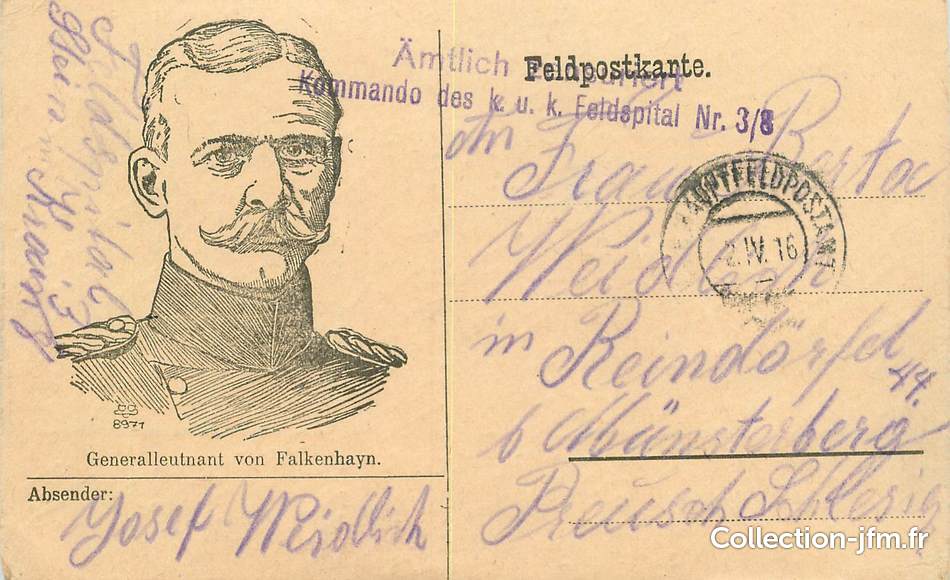 Feldpostkarte.
Ämtlich
Kommando des k. u. k. Feldspital Nr. 3/8
Feldspital
Nr. 3
An
Frau Berta
HAUPTFELDPOSTAMT
2.IV.16
Weidlich
in Reindörfel
44.
b Münsterberg
Preusch Schlesien
8971
Generalleutnant von Falkenhayn.
Absender:
Josef Weidlich
Collection-jfm.fr